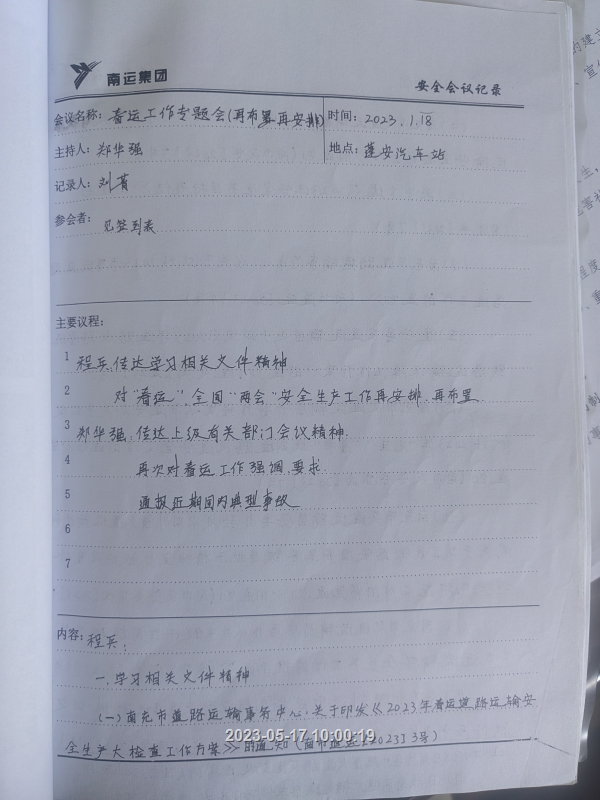 南运集团
安全会议记录
会议名称: 春运工作专题会(再布置再安排)
时间: 2023.1.18
主持人: 郑华强
地点: 蓬安汽车站
记录人: 刘菁
参会者: 见签到表
主要议程:
1 程兵,传达学习相关文件精神
2 对"春运",全国"两会"安全生产工作再安排,再布置
3 郑华强,传达上级有关部门会议精神.
4 再次对春运工作强调,要求
5 通报近期国内典型事故
6
7
内容: 程兵:
一.学习相关文件精神
(一)南充市道路运输事务中心.关于印发《2023年春运道路运输安
全生产大检查工作方案》的通知(南市道运[2023]3号)
2023-05-17 10:00:19